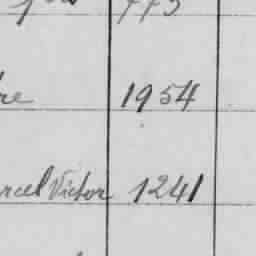 re 1954
rcel Victor 1241